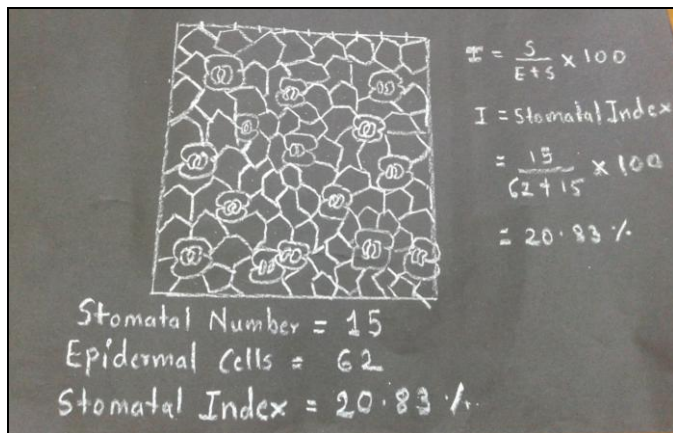 I = S/E+S × 100
I = Stomatal Index
= 15/62+15 × 100
= 20.83 %
Stomatal Number = 15
Epidermal Cells = 62
Stomatal Index = 20.83 %